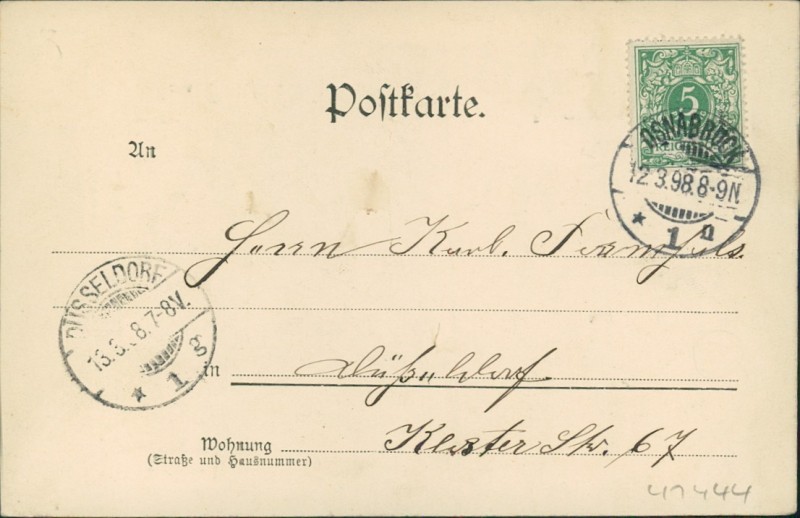 Postkarte.
5
OSNABRÜCK
12.3.98.8-9N.
* 1 n
An
Herrn Karl
DÜSSELDORF
13.3. 8.7-8V.
* 1 g
in Düsseldorf
Wohnung Kloster Str. 67
(Straße und Hausnummer)
47444